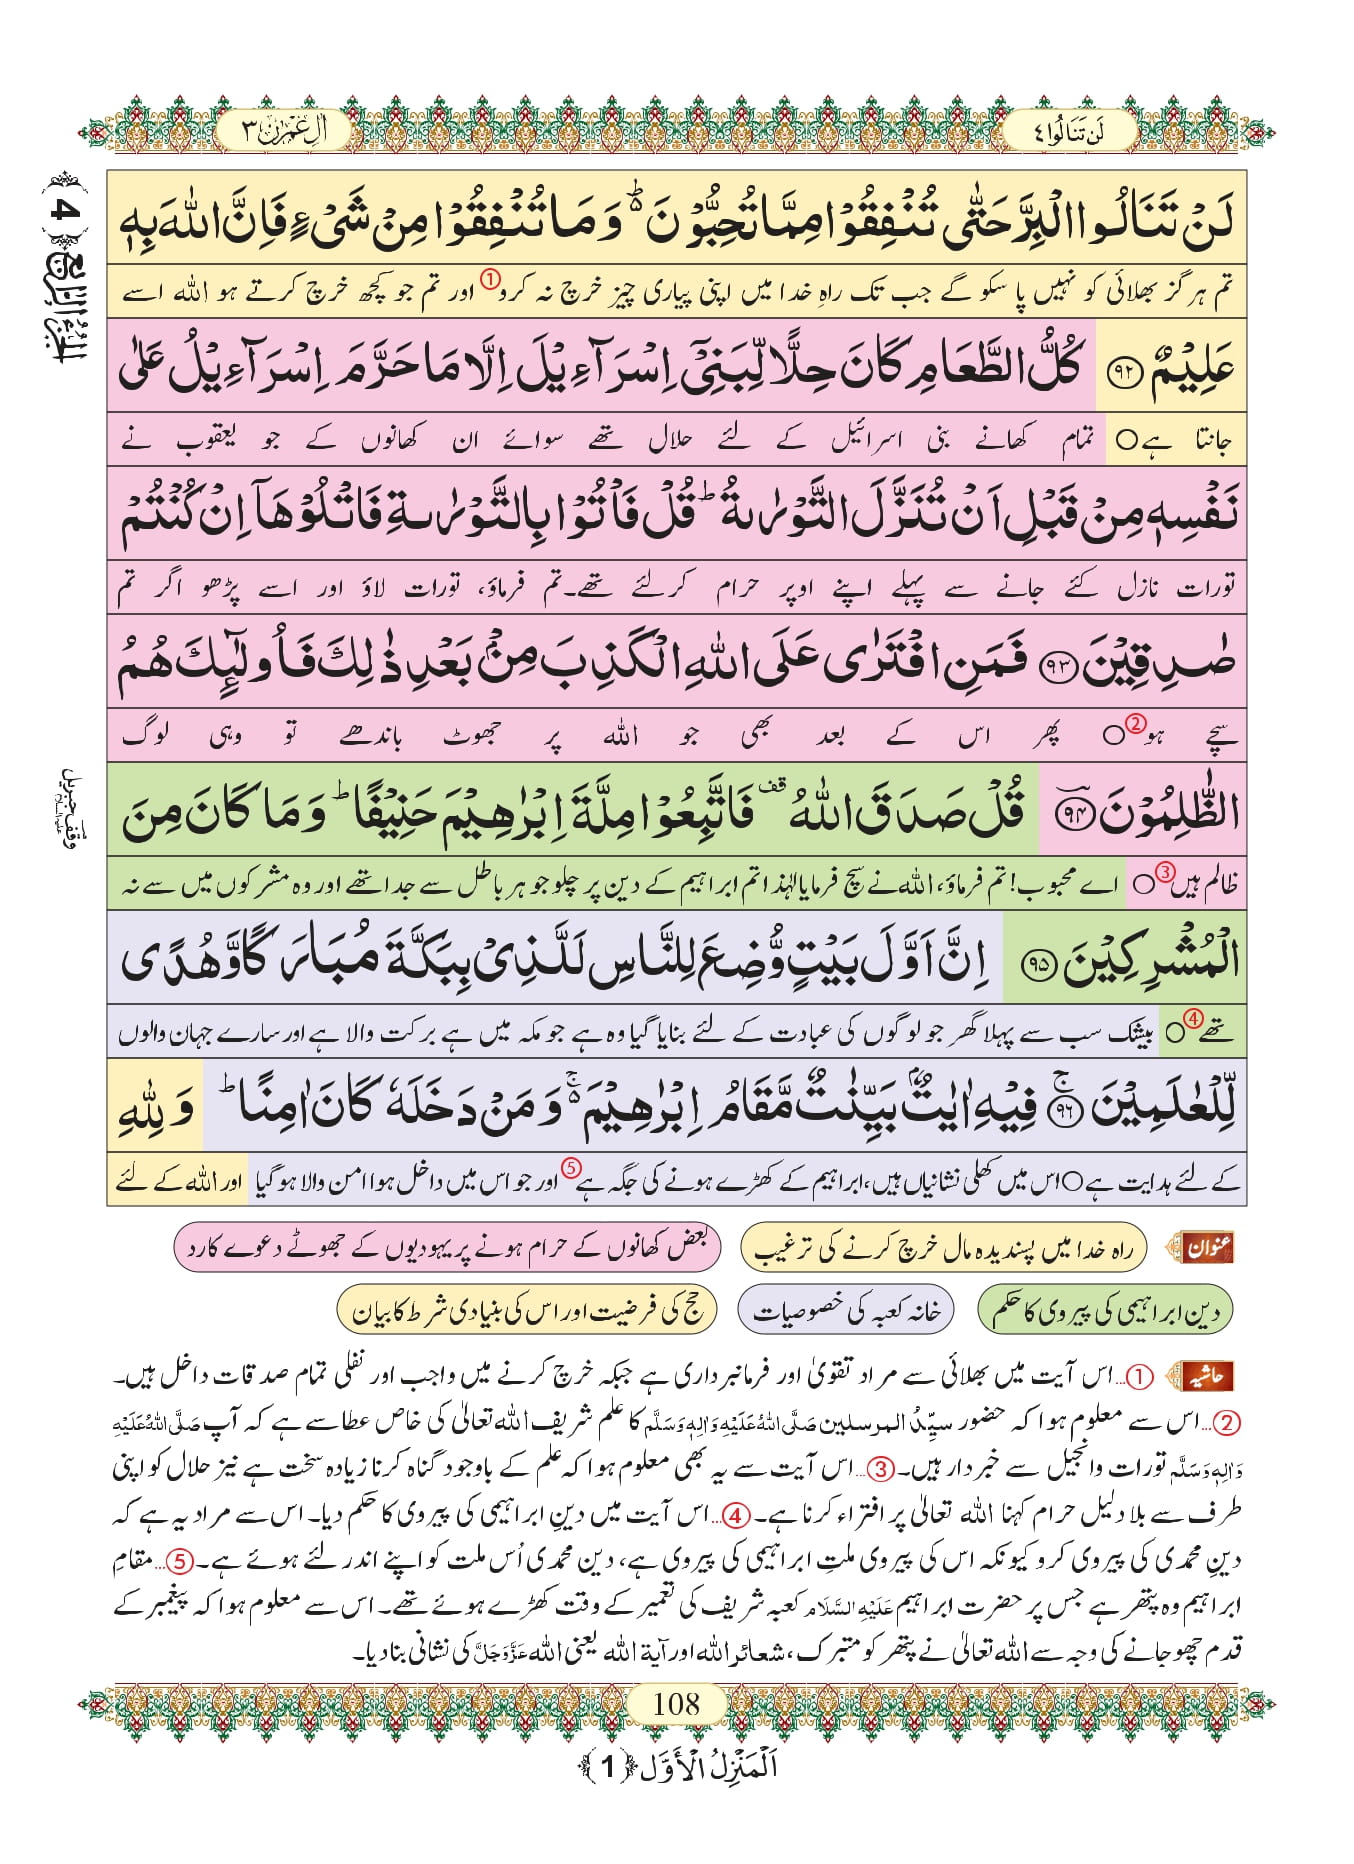 لَنْ تَنَالُوا ٤
اٰلِ عِمْرٰن ٣
اَلْجُزْءُ الرَّابِعُ ﴿4﴾
لَنْ تَنَالُوا الْبِرَّ حَتّٰى تُنْفِقُوْا مِمَّا تُحِبُّوْنَ ؕ۬ وَ مَا تُنْفِقُوْا مِنْ شَیْءٍ فَاِنَّ اللّٰهَ بِهٖ
تم ہرگز بھلائی کو نہیں پا سکو گے جب تک راہِ خدا میں اپنی پیاری چیز خرچ نہ کرو ① اور تم جو کچھ خرچ کرتے ہو اللہ اسے
عَلِیْمٌ ﴿۹۲﴾ كُلُّ الطَّعَامِ كَانَ حِلًّا لِّبَنِیْۤ اِسْرَآءِیْلَ اِلَّا مَا حَرَّمَ اِسْرَآءِیْلُ عَلٰى
جانتا ہے ○ تمام کھانے بنی اسرائیل کے لئے حلال تھے سوائے ان کھانوں کے جو یعقوب نے
نَفْسِهٖ مِنْ قَبْلِ اَنْ تُنَزَّلَ التَّوْرٰىةُ ؕ قُلْ فَاْتُوْا بِالتَّوْرٰىةِ فَاتْلُوْهَاۤ اِنْ كُنْتُمْ
تورات نازل کئے جانے سے پہلے اپنے اوپر حرام کرلئے تھے۔ تم فرماؤ، تورات لاؤ اور اسے پڑھو اگر تم
صٰدِقِیْنَ ﴿۹۳﴾ فَمَنِ افْتَرٰى عَلَى اللّٰهِ الْكَذِبَ مِنْۢ بَعْدِ ذٰلِكَ فَاُولٰٓىٕكَ هُمُ
سچے ہو ② ○ پھر اس کے بعد بھی جو اللہ پر جھوٹ باندھے تو وہی لوگ
وقف جبریل علیہ السلام
الظّٰلِمُوْنَ ﴿۹۴﴾ قُلْ صَدَقَ اللّٰهُ ۫ قف فَاتَّبِعُوْا مِلَّةَ اِبْرٰهِیْمَ حَنِیْفًا ؕ وَ مَا كَانَ مِنَ
ظالم ہیں ③ ○ اے محبوب! تم فرماؤ، اللہ نے سچ فرمایا لہٰذا تم ابراہیم کے دین پر چلو جو ہر باطل سے جدا تھے اور وہ مشرکوں میں سے نہ
الْمُشْرِكِیْنَ ﴿۹۵﴾ اِنَّ اَوَّلَ بَیْتٍ وُّضِعَ لِلنَّاسِ لَلَّذِیْ بِبَكَّةَ مُبٰرَكًا وَّ هُدًى
تھے ④ ○ بیشک سب سے پہلا گھر جو لوگوں کی عبادت کے لئے بنایا گیا وہ ہے جو مکہ میں ہے برکت والا ہے اور سارے جہان والوں
لِّلْعٰلَمِیْنَ ﴿۹۶﴾ ۚ فِیْهِ اٰیٰتٌۢ بَیِّنٰتٌ مَّقَامُ اِبْرٰهِیْمَ ۚ۬ وَ مَنْ دَخَلَهٗ كَانَ اٰمِنًا ؕ وَ لِلّٰهِ
کے لئے ہدایت ہے ○ اس میں کھلی نشانیاں ہیں، ابراہیم کے کھڑے ہونے کی جگہ ہے ⑤ اور جو اس میں داخل ہوا امن والا ہو گیا اور اللہ کے لئے
عنوان راہ خدا میں پسندیدہ مال خرچ کرنے کی ترغیب بعض کھانوں کے حرام ہونے پر یہودیوں کے جھوٹے دعوے کا رد
دین ابراہیمی کی پیروی کا حکم خانہ کعبہ کی خصوصیات حج کی فرضیت اور اس کی بنیادی شرط کا بیان
حاشیہ ①...اس آیت میں بھلائی سے مراد تقویٰ اور فرمانبرداری ہے جبکہ خرچ کرنے میں واجب اور نفلی تمام صدقات داخل ہیں۔
②...اس سے معلوم ہوا کہ حضور سیِّدُ المرسلین صَلَّی اللہُ عَلَیْہِ وَاٰلِہٖ وَسَلَّم کا علم شریف اللہ تعالیٰ کی خاص عطا سے ہے کہ آپ صَلَّی اللہُ عَلَیْہِ
وَاٰلِہٖ وَسَلَّم تورات وانجیل سے خبردار ہیں۔ ③...اس آیت سے یہ بھی معلوم ہوا کہ علم کے باوجود گناہ کرنا زیادہ سخت ہے نیز حلال کو اپنی
طرف سے بلا دلیل حرام کہنا اللہ تعالیٰ پر افتراء کرنا ہے۔ ④...اس آیت میں دینِ ابراہیمی کی پیروی کا حکم دیا۔ اس سے مراد یہ ہے کہ
دینِ محمدی کی پیروی کرو کیونکہ اس کی پیروی ملتِ ابراہیمی کی پیروی ہے، دین محمدی اُس ملت کو اپنے اندر لئے ہوئے ہے۔ ⑤...مقامِ
ابراہیم وہ پتھر ہے جس پر حضرت ابراہیم عَلَیْہِ السَّلَام کعبہ شریف کی تعمیر کے وقت کھڑے ہوئے تھے۔ اس سے معلوم ہوا کہ پیغمبر کے
قدم چھو جانے کی وجہ سے اللہ تعالیٰ نے پتھر کو متبرک، شعائر اللہ اور آیۃ اللہ یعنی اللہ عَزَّوَجَلَّ کی نشانی بنا دیا۔
108
اَلْمَنْزِلُ الْاَوَّل ﴿1﴾